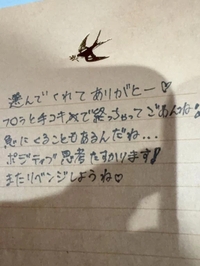 選んでくれてありがとー♡
フロラと手コキメで終っちゃってごめんな
急にくることもあるんだね...
ポジティブ思考たすかります!
またリベンジしようね♡